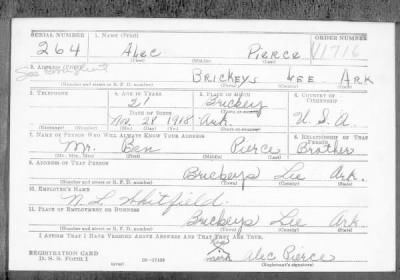 SERIAL NUMBER 1. NAME (Print) ORDER NUMBER
264 Alec Pierce 11716
(First) (Middle) (Last)
2. ADDRESS (Print)
Brickeys Lee Ark
(Number and street or R. F. D. number) (Town) (County) (State)
3. TELEPHONE 4. AGE IN YEARS 5. PLACE OF BIRTH 6. COUNTRY OF CITIZENSHIP
21 Brickey
DATE OF BIRTH (Town or county)
Nov. 28 1918 Ark. U.S.A.
(Exchange) (Number) (Mo.) (Day) (Yr.) (State or country)
7. NAME OF PERSON WHO WILL ALWAYS KNOW YOUR ADDRESS 8. RELATIONSHIP OF THAT PERSON
Mr. Ben Pierce Brother
(Mr., Mrs., Miss) (First) (Middle) (Last)
9. ADDRESS OF THAT PERSON
Brickeys Lee Ark.
(Number and street or R. F. D. number) (Town) (County) (State)
10. EMPLOYER'S NAME
N. L. Whitfield.
11. PLACE OF EMPLOYMENT OR BUSINESS
Brickeys Lee Ark
(Number and street or R. F. D. number) (Town) (County) (State)
I AFFIRM THAT I HAVE VERIFIED ABOVE ANSWERS AND THAT THEY ARE TRUE.
his
REGISTRATION CARD mark Alec Pierce
D. S. S. FORM 1 (over) 16-17105 (Registrant's signature)